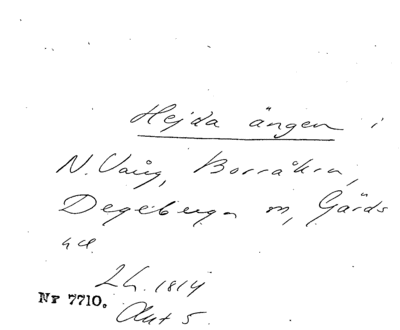 Hejda ängen i
N. Vång, Borråkra,
Degeberga sn, Gärds
hd.
Lh. 1814
Nr 7710.
Akt 5.